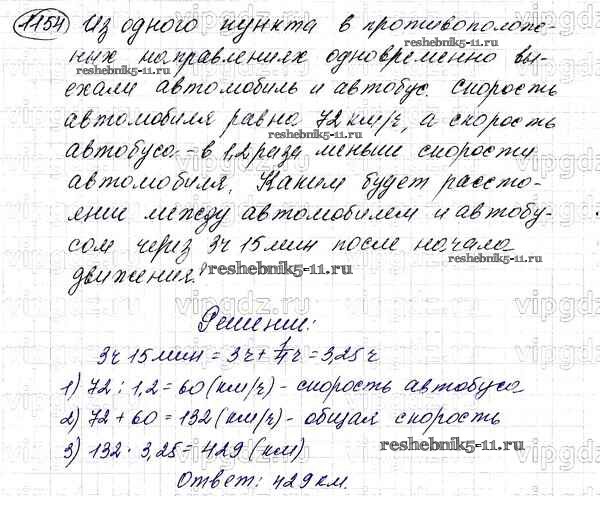 1154 Из одного пункта в противополож-
ных направлениях одновременно вы-
reshebnik5-11.ru
ехали автомобиль и автобус. Скорость
автомобиля равна 72 км/ч, а скорость
reshebnik5-11.ru
автобуса - в 1,2 раза меньше скорости
автомобиля. Каким будет рассто-
яние между автомобилем и автобу-
сом через 3ч 15 мин после начала
reshebnik5-11.ru
движения?
reshebnik5-11.ru
Решение:
3ч 15 мин = 3ч + 1/4 ч = 3,25 ч
1) 72 : 1,2 = 60 (км/ч) - скорость автобуса
2) 72 + 60 = 132 (км/ч) - общая скорость
3) 132 · 3,25 = 429 (км)
reshebnik5-11.ru
Ответ: 429 км.
vipgdz.ru